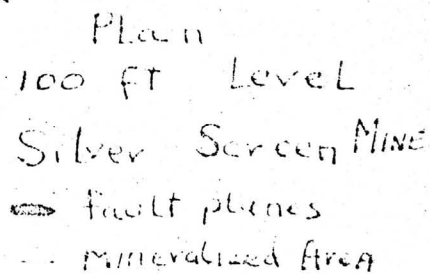 Plan
100 ft Level
Silver Screen MINE
fault planes
Mineralized Area